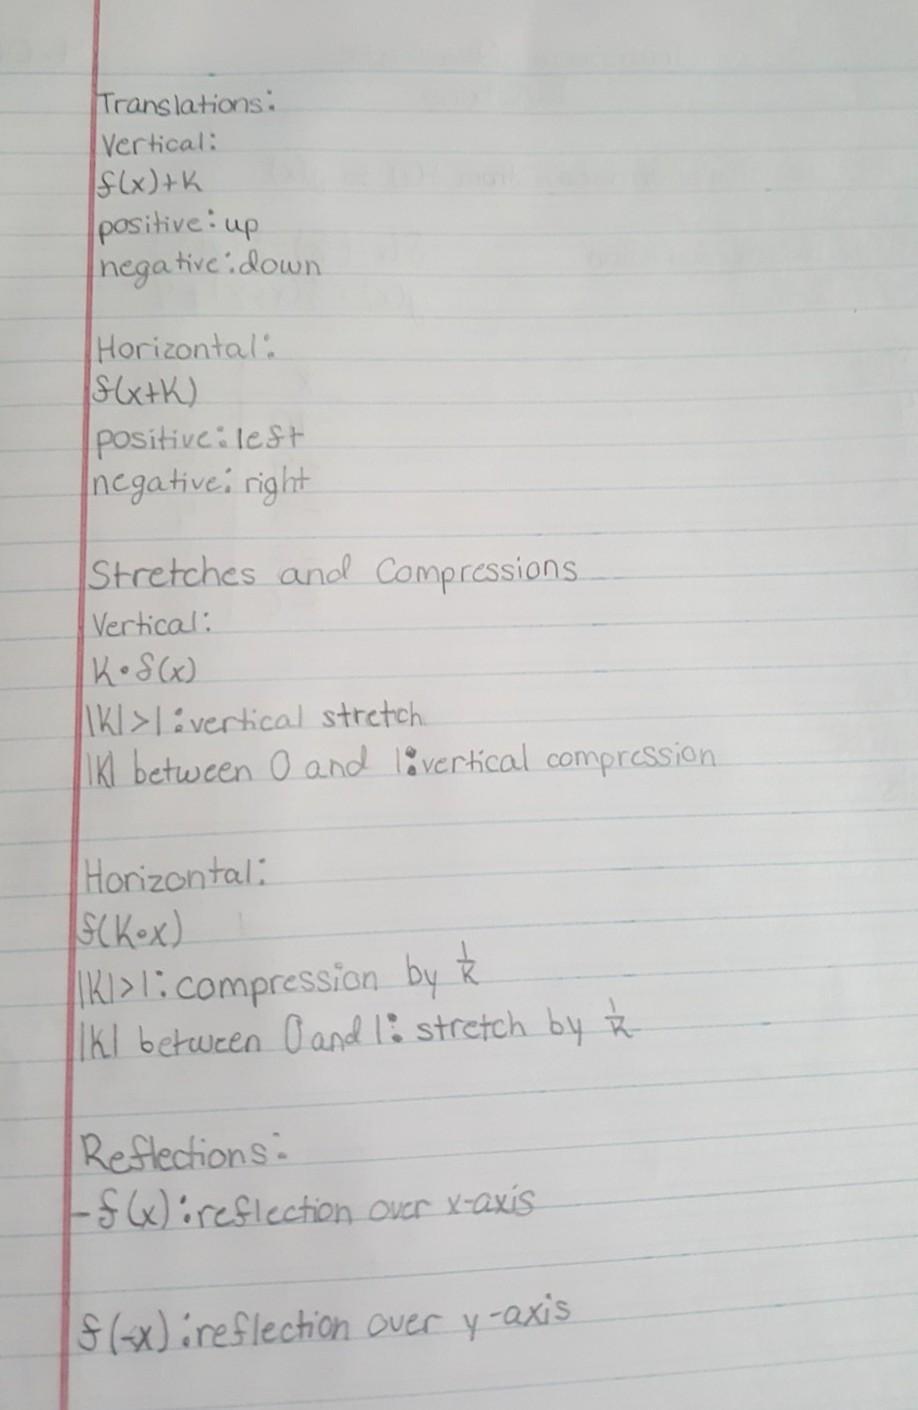 Translations:
Vertical:
f(x)+K
positive: up
negative: down
Horizontal:
f(x+K)
positive: left
negative: right
Stretches and Compressions
Vertical:
K•f(x)
|K|>1: vertical stretch
|K| between 0 and 1: vertical compression
Horizontal:
f(K•x)
|K|>1: compression by 1/K
|K| between 0 and 1: stretch by 1/K
Reflections:
-f(x): reflection over x-axis
f(-x): reflection over y-axis